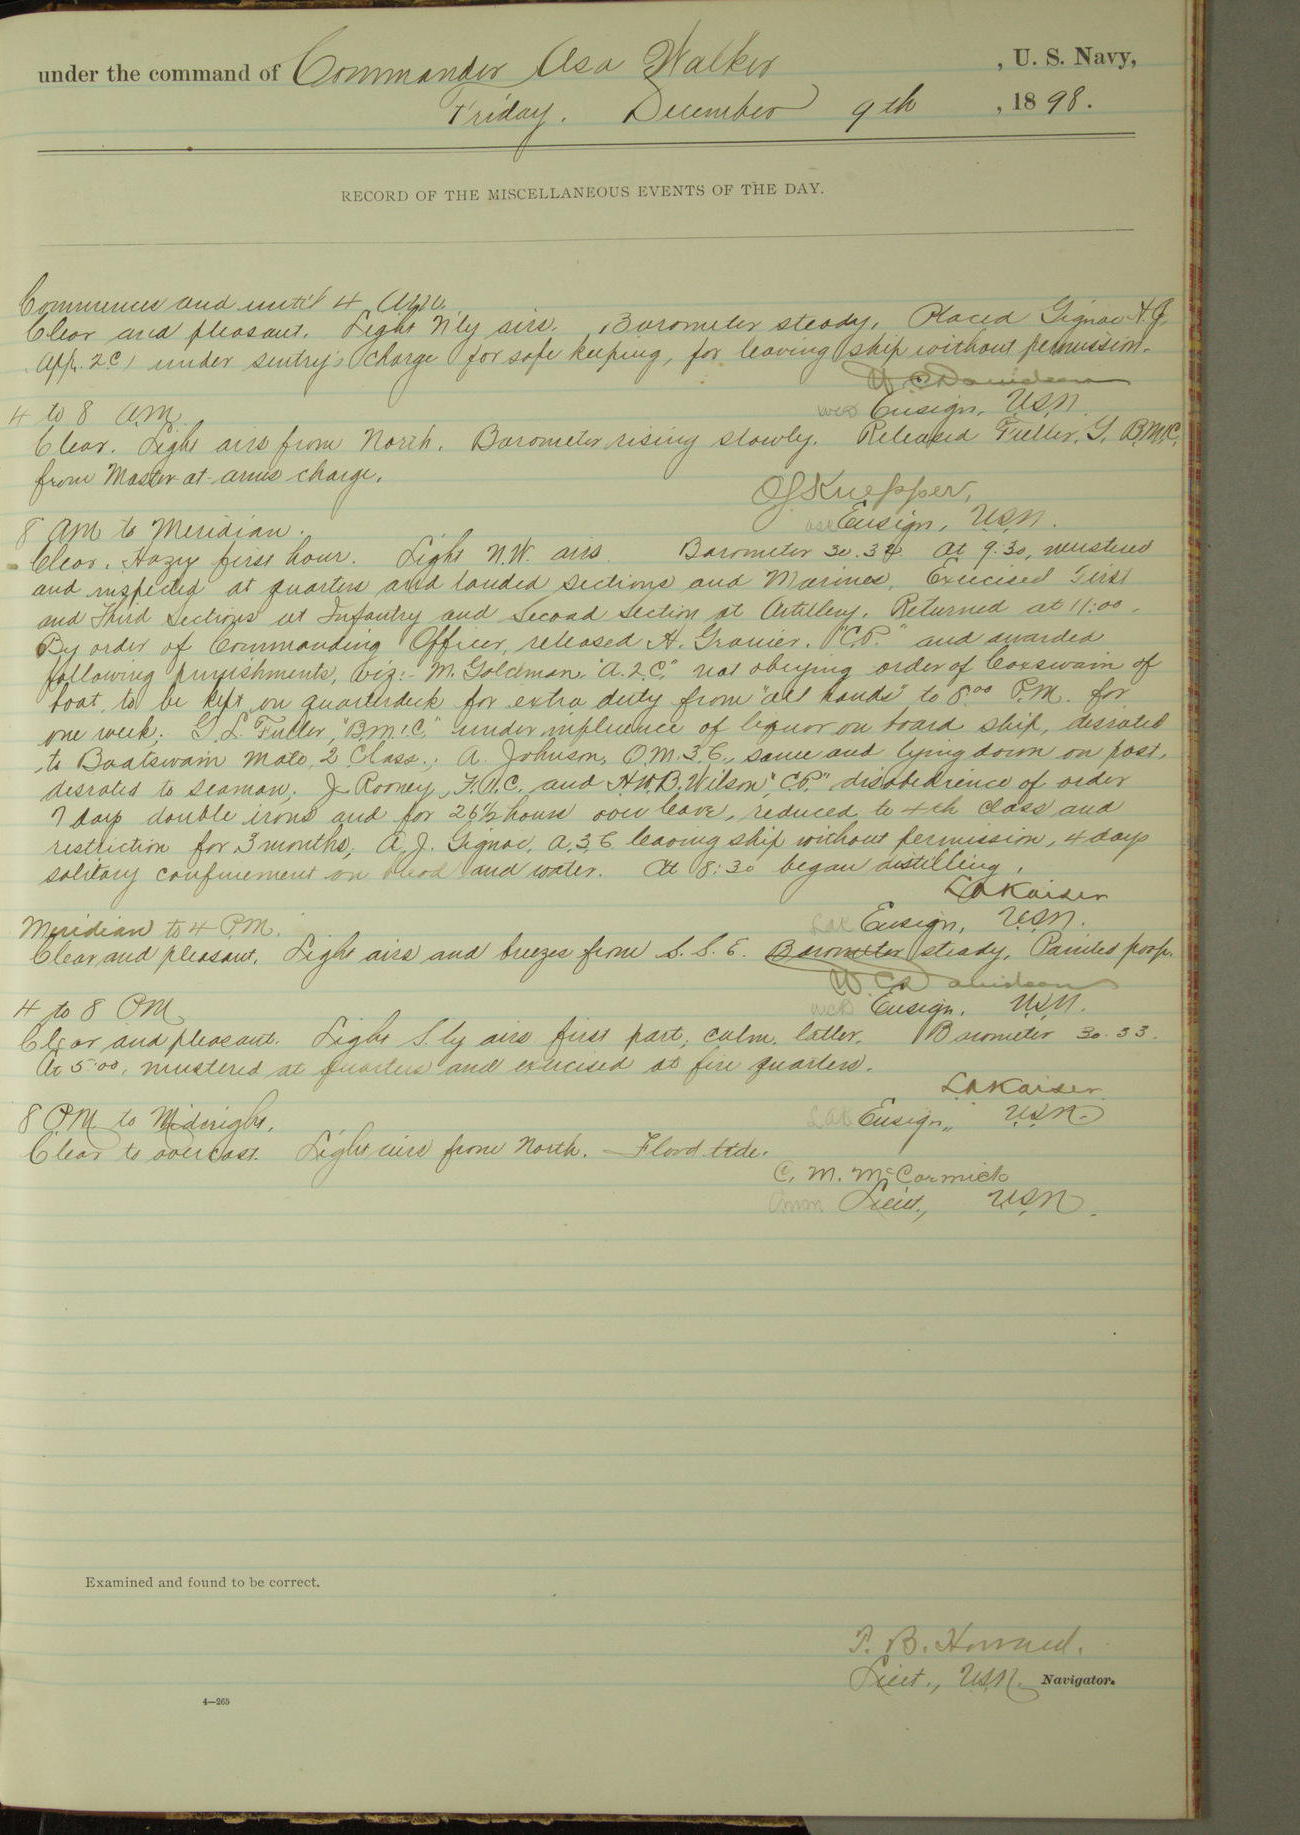 under the command of Commander Asa Walker, U. S. Navy,
Friday. December 9th, 1898.
RECORD OF THE MISCELLANEOUS EVENTS OF THE DAY.
Commences and until 4 A.M.
Clear and pleasant. Light N'ly airs. Barometer steady. Placed Gignac A.J.
App. 2.C. under sentry's charge for safe keeping, for leaving ship without permission.
W. C. Davidson
Ensign, U.S.N.
4 to 8 A.M.
Clear. Light airs from North. Barometer rising slowly. Released Fuller, G. B.M.1C.
from Master-at-arms charge.
O J Knepper,
Ensign, U.S.N.
8 AM to Meridian.
Clear. Hazy first hour. Light N.W. airs. Barometer 30.34. At 9:30, mustered
and inspected at quarters and landed sections and Marines. Exercised First
and Third Sections at Infantry and Second Section at Artillery. Returned at 11:00.
By order of Commanding Officer, released A. Granier. "C.P." and awarded
following punishments, viz:- M. Goldman, "A.2.C." not obeying order of Coxswain of
boat, to be kept on quarterdeck for extra duty from "all hands" to 8:00 P.M. for
one week; G. L. Fuller, "B.M.1C." under influence of liquor on board ship, disrated
to Boatswain Mate, 2 Class.; A. Johnson, Q.M.3.C., same and lying down on post,
disrated to seaman; J. Rooney, F.1.C. and H.W.B. Wilson, "C.P." disobedience of order
7 days double irons and for 26½ hours over leave, reduced to 4th class and
restriction for 3 months; A. J. Gignac, A.3.C. leaving ship without permission, 4 days
solitary confinement on bread and water. At 8:30 began distilling.
L A Kaiser
Ensign, U.S.N.
Meridian to 4 P.M.
Clear and pleasant. Light airs and breezes from S.S.E. Barometer steady. Painted poop.
W. C. Davidson
Ensign, U.S.N.
4 to 8 PM
Clear and pleasant. Light S.ly airs first part, calm latter. Barometer 30.33.
At 5:00, mustered at quarters and exercised at fire quarters.
L A Kaiser
Ensign, U.S.N.
8 PM to Midnight.
Clear to overcast. Light airs from North. Flood tide.
C. M. McCormick
Lieut., U.S.N.
Examined and found to be correct.
T. B. Howard.
Lieut., U.S.N. Navigator.
4—265